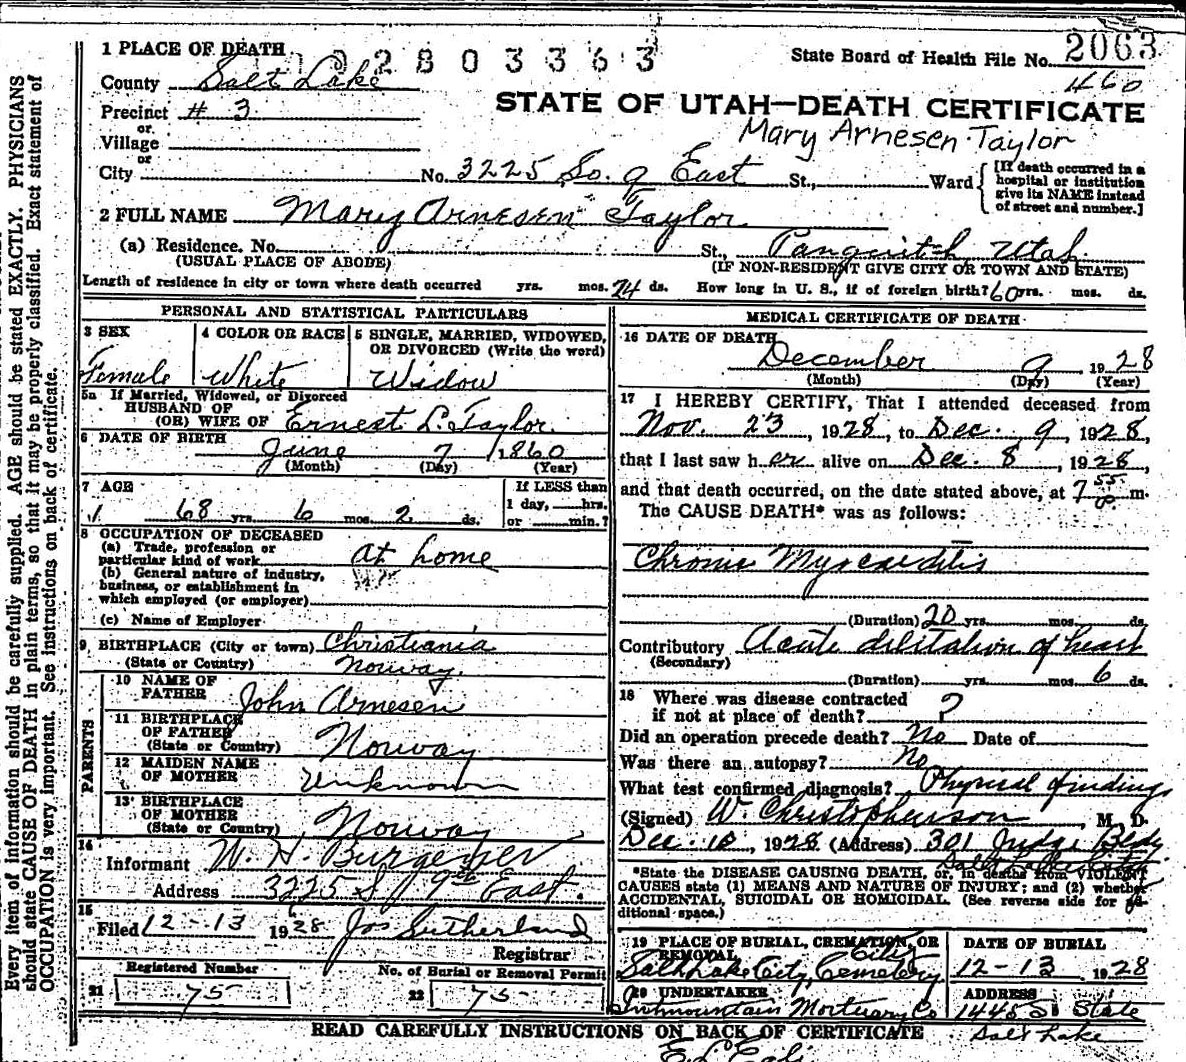 1 PLACE OF DEATH
02803363
State Board of Health File No. 2063
460
County Salt Lake
Precinct # 3
or
Village
or
City
STATE OF UTAH—DEATH CERTIFICATE
Mary Arnesen Taylor
No. 3225 So. 9 East St., Ward
[If death occurred in a hospital or institution give its NAME instead of street and number.]
2 FULL NAME Mary Arnesen Taylor
(a) Residence. No. St., Panguitch, Utah.
(USUAL PLACE OF ABODE) (IF NON-RESIDENT GIVE CITY OR TOWN AND STATE)
Length of residence in city or town where death occurred yrs. mos. 24 ds. How long in U. S., if of foreign birth? 60 yrs. mos. ds.
PERSONAL AND STATISTICAL PARTICULARS
3 SEX
Female
4 COLOR OR RACE
White
5 SINGLE, MARRIED, WIDOWED, OR DIVORCED (Write the word)
Widow
5a If Married, Widowed, or Divorced
HUSBAND OF
(OR) WIFE OF Ernest L. Taylor.
6 DATE OF BIRTH
June 7 1860
(Month) (Day) (Year)
7 AGE
68 yrs. 6 mos. 2 ds.
If LESS than
1 day, hrs.
or min.?
8 OCCUPATION OF DECEASED
(a) Trade, profession or
particular kind of work at home
(b) General nature of industry,
business, or establishment in
which employed (or employer)
(c) Name of Employer
9 BIRTHPLACE (City or town) Christiania
(State or Country) Norway.
PARENTS
10 NAME OF
FATHER John Arnesen
11 BIRTHPLACE
OF FATHER
(State or Country) Norway
12 MAIDEN NAME
OF MOTHER Unknown
13 BIRTHPLACE
OF MOTHER
(State or Country) Norway
14
Informant W. H.
Address 3225 S 9th East.
15
Filed 12-13 1928 Jos Sutherland
Registrar
Registered Number
21 75
No. of Burial or Removal Permit
22 75
MEDICAL CERTIFICATE OF DEATH
16 DATE OF DEATH
December 9 1928
(Month) (Day) (Year)
17 I HEREBY CERTIFY, That I attended deceased from
Nov. 23, 1928, to Dec. 9, 1928,
that I last saw her alive on Dec. 8, 1928,
and that death occurred, on the date stated above, at 7 55 m.
The CAUSE DEATH* was as follows:
Chronic Myocarditis
(Duration) 20 yrs. mos. ds.
Contributory Acute dilitation of heart
(Secondary)
(Duration) yrs. mos. 6 ds.
18 Where was disease contracted
if not at place of death? ?
Did an operation precede death? No Date of
Was there an autopsy? No
What test confirmed diagnosis? Physical findings
(Signed) W. Christopherson, M. D.
Dec. 10, 1928 (Address) 301 Judge Bldg
Salt Lake City
*State the DISEASE CAUSING DEATH, or, in deaths from VIOLENT
CAUSES state (1) MEANS AND NATURE OF INJURY; and (2) whether
ACCIDENTAL, SUICIDAL OR HOMICIDAL. (See reverse side for ad-
ditional space.)
19 PLACE OF BURIAL, CREMATION, OR
REMOVAL City
Salt Lake City, Cemetery
DATE OF BURIAL
12-13 1928
20 UNDERTAKER
Intmountain Mortuary Co
ADDRESS
1445 So State
Salt Lake
READ CAREFULLY INSTRUCTIONS ON BACK OF CERTIFICATE
Every item of information should be carefully supplied. AGE should be stated EXACTLY. PHYSICIANS
should state CAUSE OF DEATH in plain terms, so that it may be properly classified. Exact statement of
OCCUPATION is very important. See instructions on back of certificate.